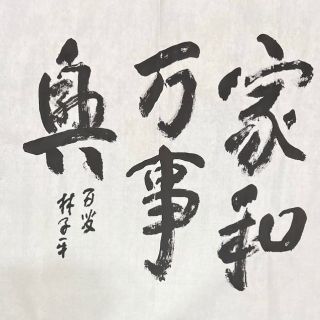 家和
万事
興
百
林子平